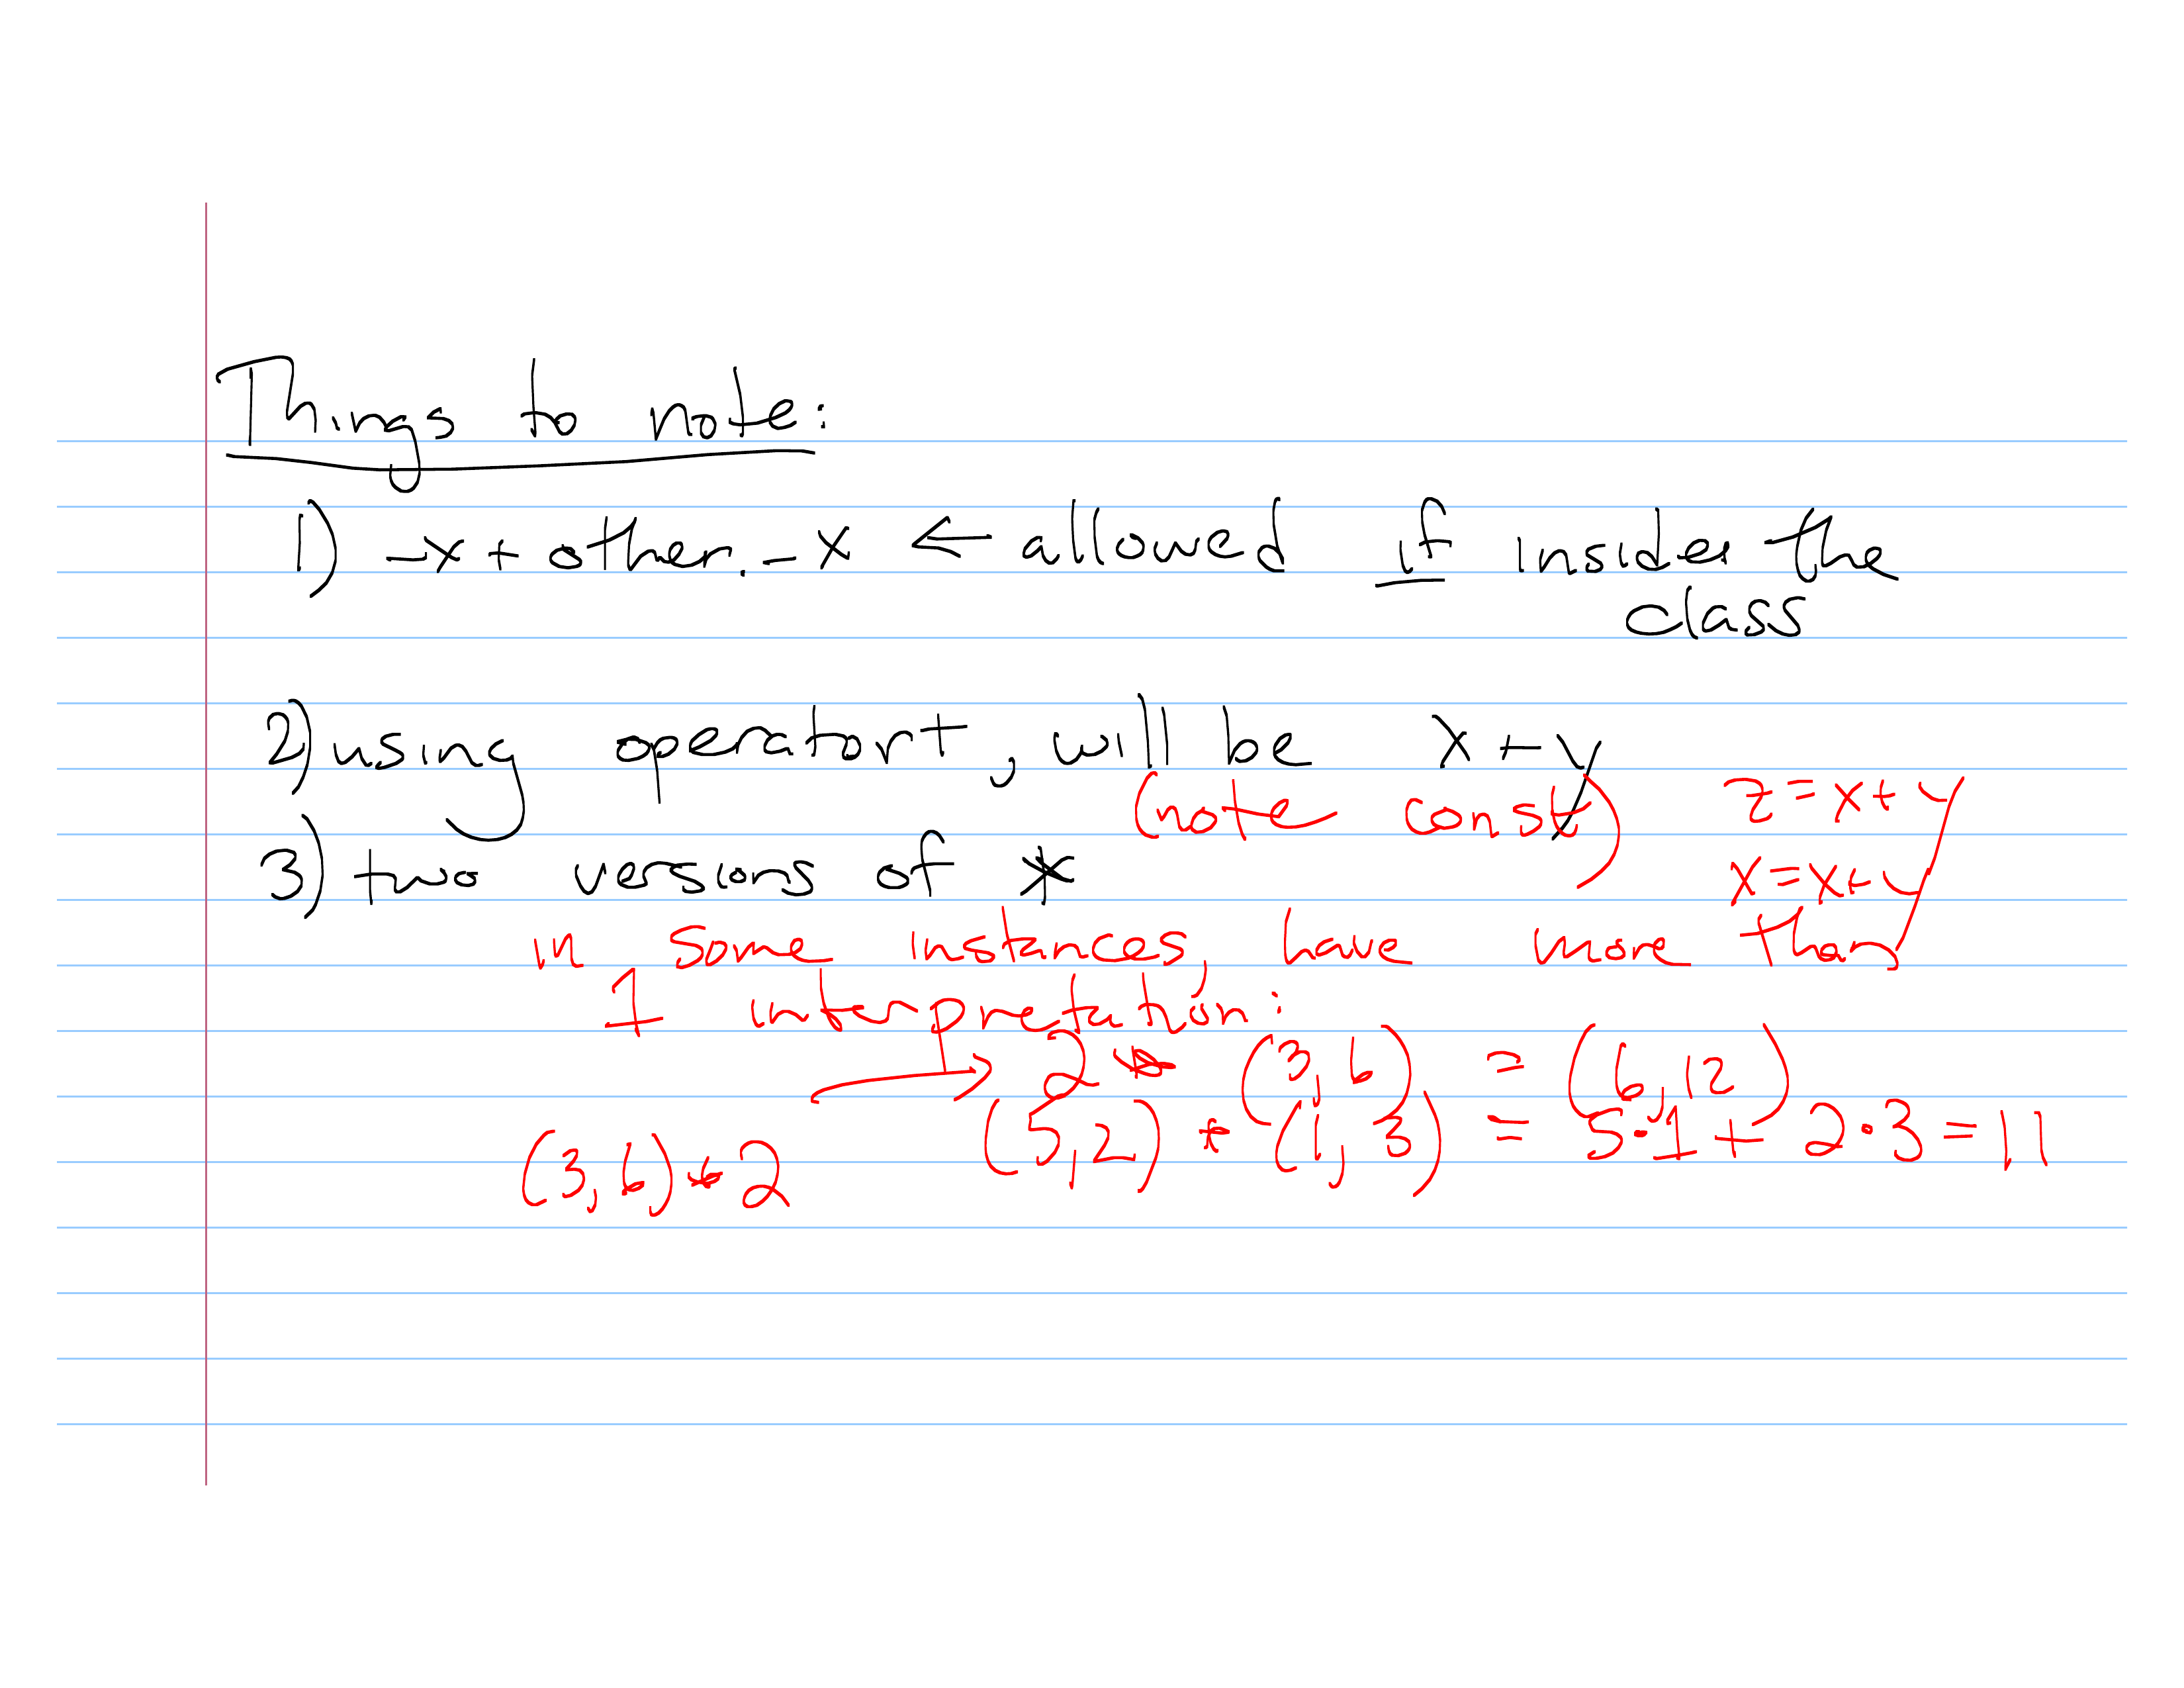 Things to note:
1) _x + other._x ← allowed if inside the
class
2) using operator+, will be x + y
(note const) z = x + y
3) two versions of * x = x + y
in some instances, have more than
1 interpretation:
→ 2 * (3, 6) = (6, 12)
(5, 2) * (1, 3) = 5·1 + 2·3 = 11
(3, 6) * 2